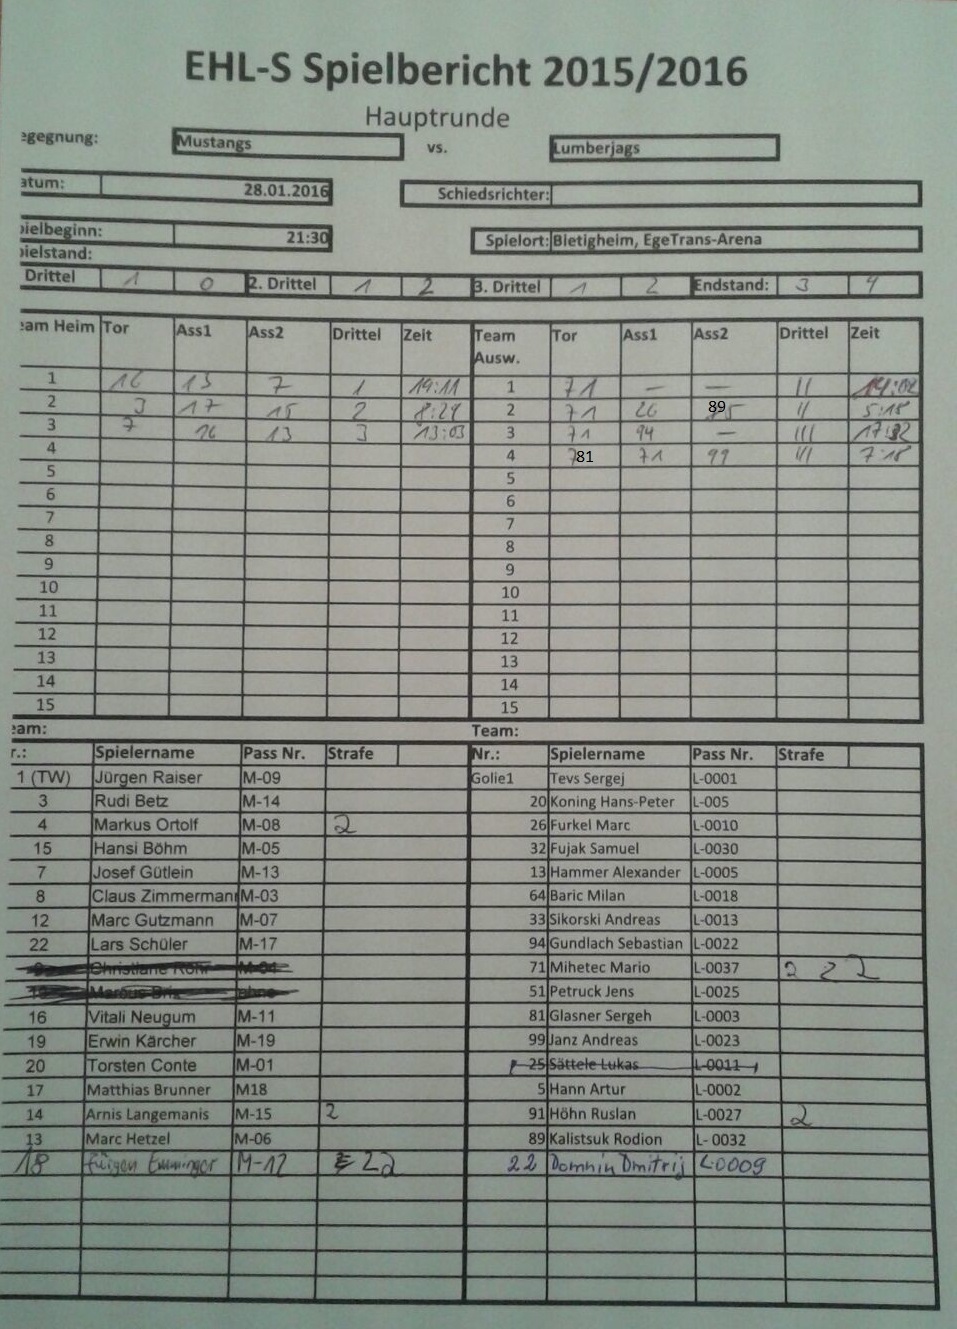 EHL-S Spielbericht 2015/2016
Hauptrunde
egegnung: Mustangs vs. Lumberjags
atum: 28.01.2016 Schiedsrichter:
pielbeginn: 21:30 Spielort: Bietigheim, EgeTrans-Arena
pielstand:
Drittel 1 0 2. Drittel 1 2 3. Drittel 1 2 Endstand: 3 4
eam Heim Tor Ass1 Ass2 Drittel Zeit Team Ausw. Tor Ass1 Ass2 Drittel Zeit
1 16 13 7 1 19:11 1 71 — — II 14:02
2 3 17 15 2 8:28 2 71 26 89 II 5:18
3 7 16 13 3 13:03 3 71 94 — III 17:32
4 4 81 71 99 III 7:18
5 5
6 6
7 7
8 8
9 9
10 10
11 11
12 12
13 13
14 14
15 15
eam: Team:
r.: Spielername Pass Nr. Strafe Nr.: Spielername Pass Nr. Strafe
1 (TW) Jürgen Raiser M-09 Golie1 Tevs Sergej L-0001
3 Rudi Betz M-14 20 Koning Hans-Peter L-005
4 Markus Ortolf M-08 2 26 Furkel Marc L-0010
15 Hansi Böhm M-05 32 Fujak Samuel L-0030
7 Josef Gütlein M-13 13 Hammer Alexander L-0005
8 Claus Zimmermann M-03 64 Baric Milan L-0018
12 Marc Gutzmann M-07 33 Sikorski Andreas L-0013
22 Lars Schüler M-17 94 Gundlach Sebastian L-0022
71 Mihetec Mario L-0037 2 2 2
51 Petruck Jens L-0025
16 Vitali Neugum M-11 81 Glasner Sergeh L-0003
19 Erwin Kärcher M-19 99 Janz Andreas L-0023
20 Torsten Conte M-01 25 Sättele Lukas L-0011
17 Matthias Brunner M18 5 Hann Artur L-0002
14 Arnis Langemanis M-15 2 91 Höhn Ruslan L-0027 2
13 Marc Hetzel M-06 89 Kalistsuk Rodion L- 0032
18 Jürgen Emminger M-12 2 2 22 Domnin Dmitrij L-0009